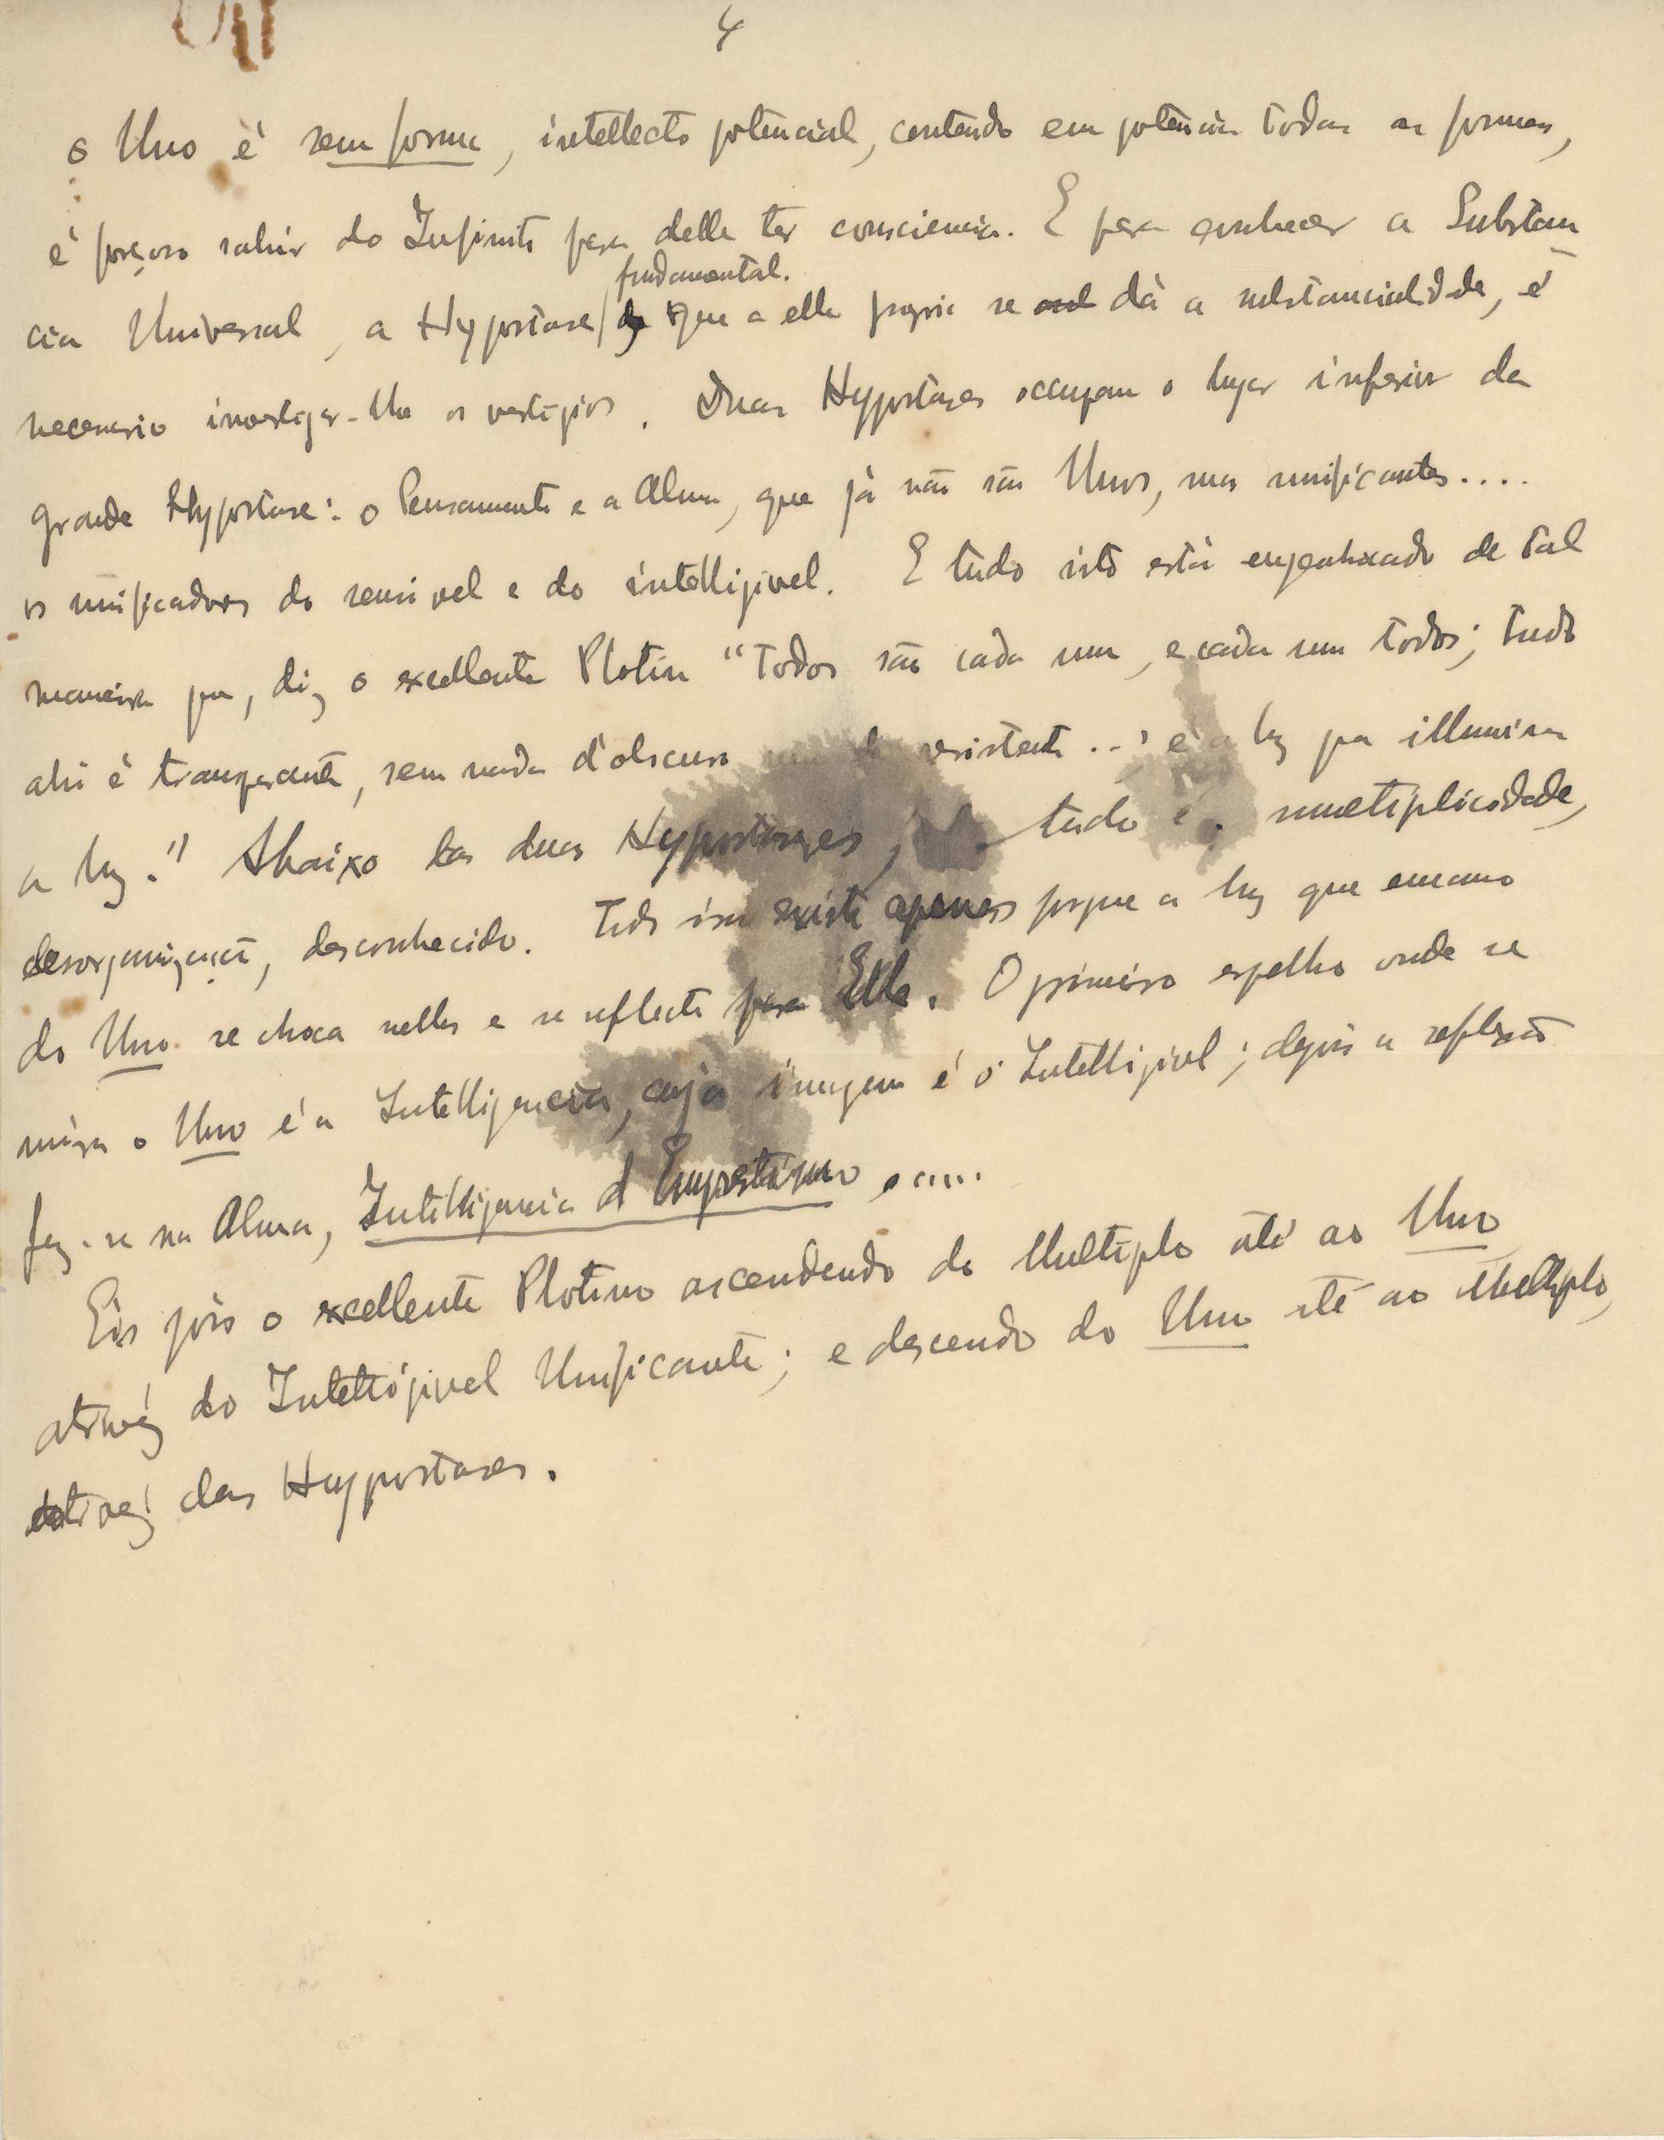 4
o Uno é sem forma, intellecto potencial, contendo em potencia todas as formas,
é forçoso sahir do Infinito para delle ter consciencia. E para conhecer a Substan
fundamental.
cia Universal, a Hypostase que a elle propria se dá a substancialidade, é
necessario investigar-lhe os vestigios. Duas Hypostases occupam o lugar inferior da
grande Hypostase: o Pensamento e a Alma, que já não são Unos, mas unificantes....
os unificadores do sensivel e do intelligivel. E tudo isto está engenhocado de tal
maneira que, diz o excellente Plotin "Todos são cada um, e cada um todos; tudo
ahi é transparente, sem nada d'obscuro resistente ... é a luz que illumina
a luz." Abaixo das duas Hypostases, tudo é multiplicidade,
desorganização, desconhecido. Tudo isso existe apenas porque a luz que emana
do Uno se choca nelles e se reflecte para Elle. O primeiro espelho onde se
mira o Uno é a Intelligencia, cuja imagem é o Intelligivel; depois a reflexão
faz-se na Alma, Intelligencia d'Emprestimo
Eis pois o excellente Plotino ascendendo do Multiplo até ao Uno
atravéz do Intelligivel Unificante; e descendo do Uno até ao Multiplo,
atravéz das Hypostases.